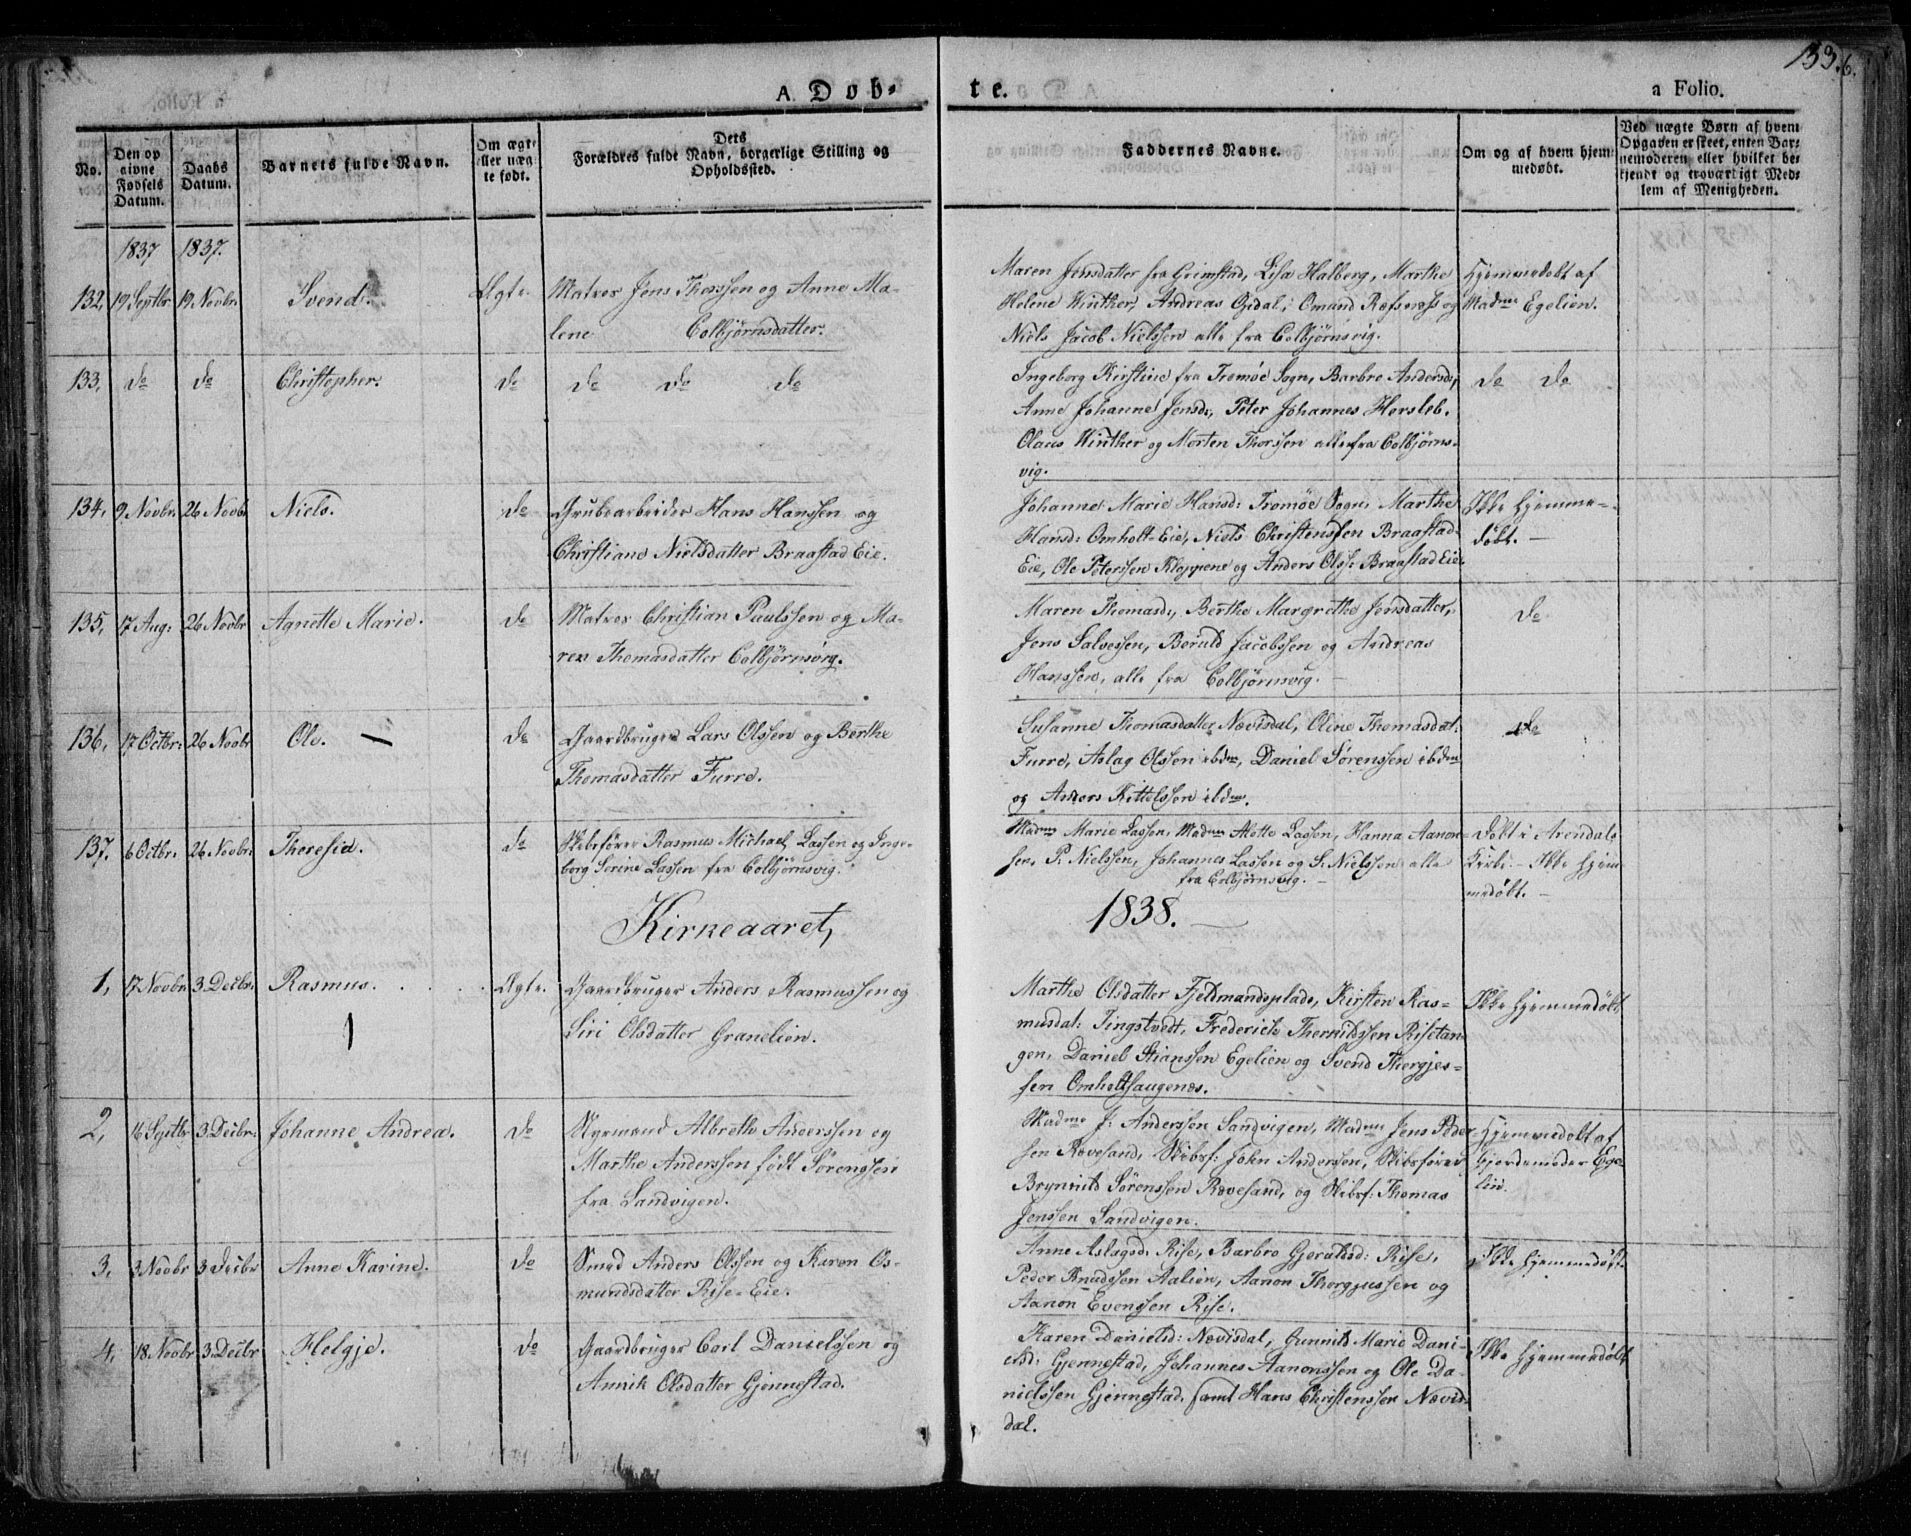 133.
6.
A. Døb-
te.
a Folio.
No.
Den op
givne
Fødsels
Datum.
Daabs
Datum.
Barnets fulde Navn.
Om ægte
eller uæg-
te født.
Dets
Forældres fulde Navn, borgerlige Stilling og
Opholdssted.
Faddernes Navne.
Om og af hvem hjem-
medøbt.
Ved uægte Børn af hvem
Opgaven er skeet, enten Bar-
nemoderen eller hvilket be-
kjendt og troværdigt Med-
lem af Menigheden.
1837 1837.
132, 19 Septbr 19 Novbr. Svend. Ægte. Matros Jens Thorssen og Anne Ma-
lene Colbjørnsdatter.
Maren Jensdatter fra Grimstad, Lisa Halberg, Marthe
Helene Winther, Andreas Omund Ræfsnæss og
Niels Jacob Nielssen alle fra Colbjørnsvig.
Hjemmedøbt af
Madme Egelien.
133, do do Christopher. do do do do
Ingeborg Kirstine fra Tromøe Sogn, Barbre Andersd:,
Anne Johanne Jensd:, Peter Johannes Hersleb.
Olaus Winther og Morten Thorssen alle fra Colbjørns-
vig.
do do
134, 9 Novbr. 26 Novbr Niels. do Grubearbeider Hans Hanssen og
Christiane Nielsdatter Braastad Eie.
Johanne Marie Hansd: Tromøe Sogn, Marthe
Hansd: Omholt-Eie, Niels Christenssen Braastad
Eie, Ole Peterssen Kloppene og Anders Olss: Braastad Eie.
Ikke hjemme-
døbt. —
135, 17 Aug: 26 Novbr Agnette Marie. do Matros Christian Paulssen og Ma-
ren Thomasdatter Colbjørnsvig.
Maren Thomasd:, Berthe Margrethe Jensdatter,
Jens Salvessen, Beruld Jacobssen og Andreas
Hanssen, alle fra Colbjørnsvig. —
do
136, 17 Octbr: 26 Novbr Ole. — do Gaardbruger Lars Olssen og Berthe
Thomasdatter Furre.
Susanne Thomasdatter Nævisdal, Oline Thomasdat:
Furre, Aslag Olssen ibdm, Daniel Sørenssen ibdm
og Anders Kittelssen ibdm.
do
137. 6 Octbr. 26 Novbr. Theresia. do Skibsfører Rasmus Michael Lassen og Inge-
borg Serine Lassen fra Colbjørnsvig.
Madme Marie Lassen, Madme Lassen, Hanna Aanon-
sen, P. Nielssen, Johannes Lassen og S. Nielssen alle
fra Colbjørnsvig. —
Døbt i Arendals
Kirke. — Ikke hjem-
medøbt. —
Kirkeaaret, 1838. —
1, 17 Novbr 3 Decbr. Rasmus. Ægte. Gaardbruger Anders Rasmussen og
Siri Olsdatter Granelien.
Marthe Olsdatter Fjeldmandsplads, Kirsten Ras-
musdat: Tingstvedt, Frederich Thorvildssen Risetan-
gen, Daniel Stianssen Egelien og Svend Thergjes-
sen Omholtshaugenes.
Ikke hjemmedøbt
2, 16 Septbr 3 Decbr. Johanne Andrea. do Styrmand Albreth Anderssen og
Marthe Anderssen født Sørenssen
fra Sandvigen.
Madme J: Anderssen Sandvigen, Madme Jens Peder-
sen Rævesand, Skibsf: John Anderssen, Skibsfører
Brynild Sørenssen Rævesand, og Skibsf: Thomas
Jenssen Sandvigen.
Hjemmedøbt af
Gjordemoder Ege-
lien.
3, 3 Novbr 3 Decbr Anne Karine. do Smed Anders Olssen og Karen Os-
mundsdatter Rise-Eie.
Anne Aslagsd: Rise, Barbro Gjeruldsd: Rise,
Peder Knudssen Aalien, Aanon Thorgjussen og
Aanon Evenssen Rise.
Ikke hjemmedøbt.
4, 18 Novbr 3 Decbr Helgje. do Gaardbruger Carl Danielssen og
Annik Olsdatter Gjennestad.
Karen Danielsd: Nævisdal, Gunnild Marie Dani-
elsd: Gjennestad, Johannes Aanonssen og Ole Da-
nielssen Gjennestad, samt Hans Christenssen Nævis-
dal.
Ikke hjemmedøbt